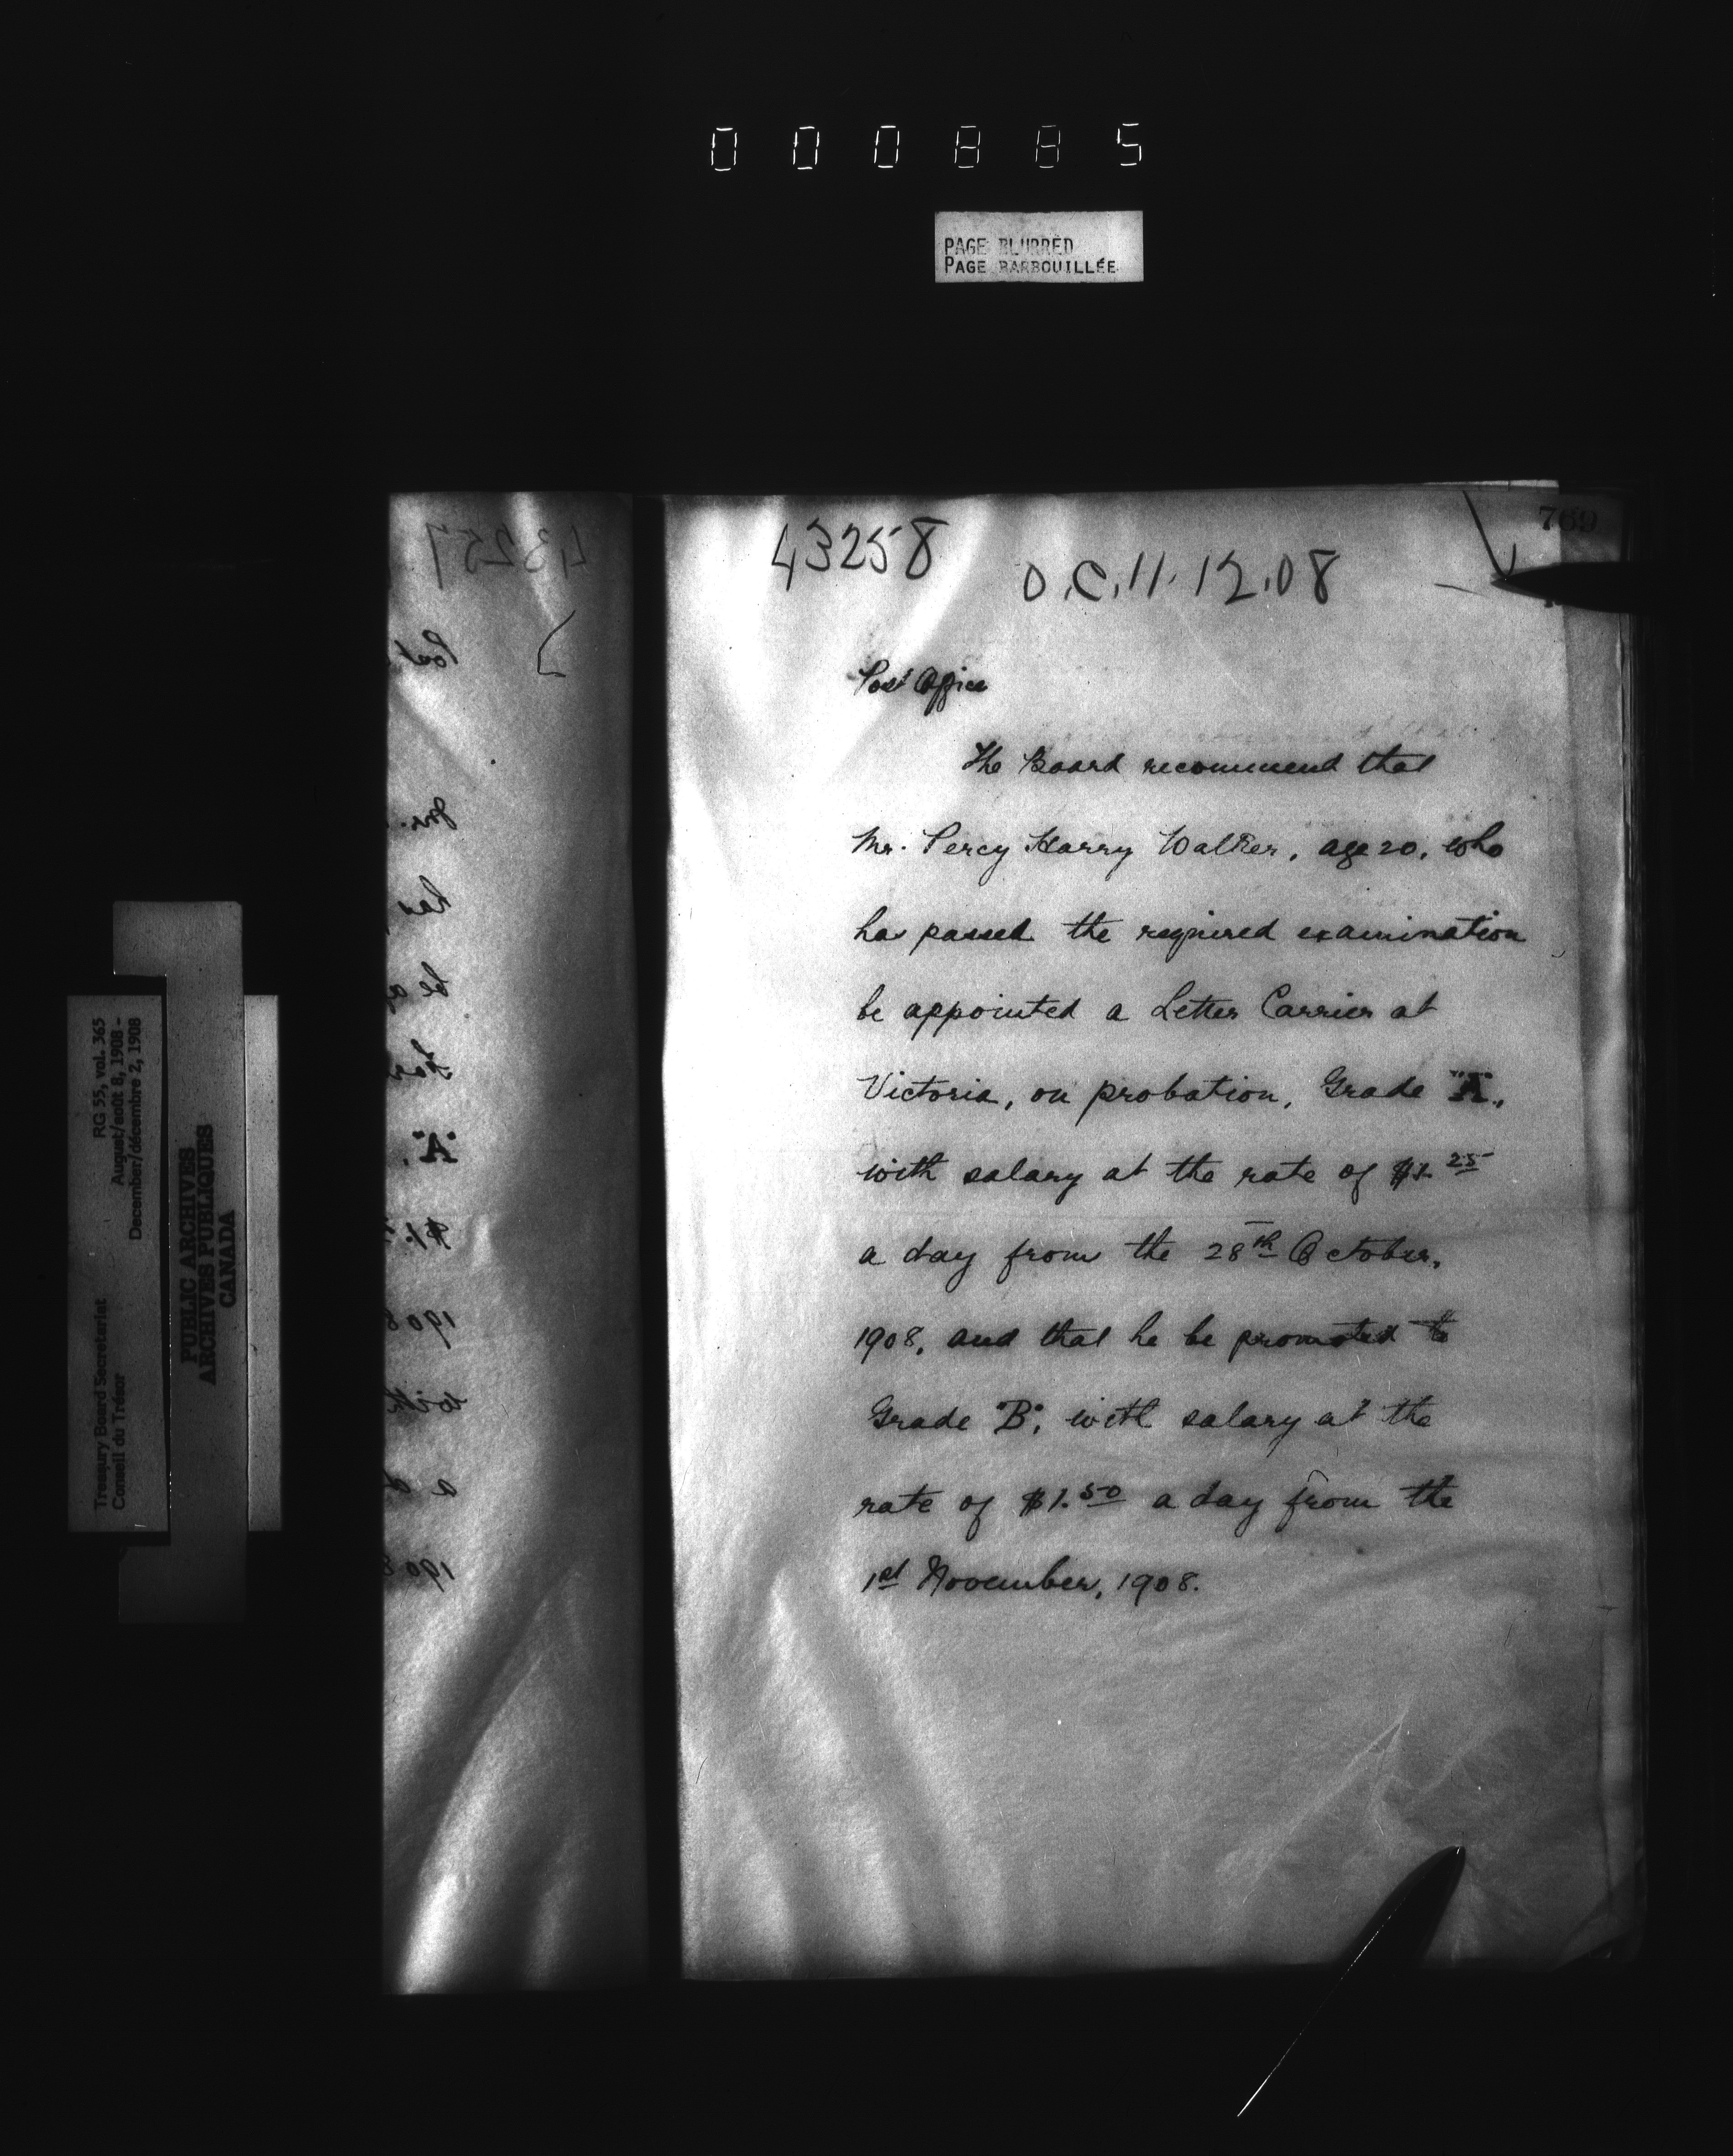 000885
PAGE BLURRED
PAGE BARBOUILLÉE
769
43258
O.C. 11.12.08
Post Office
The Board recommend that
Mr. Percy Harry Walker, age 20, who
has passed the required examination
be appointed a Letter Carrier at
Victoria, on probation, Grade "A",
with salary at the rate of $1.25
a day from the 28th October,
1908, and that he be promoted to
Grade "B", with salary at the
rate of $1.50 a day from the
1st November, 1908.
43257
Post
Mr.
has
be a
"A".
$1.
1908
with
a d
1908
Treasury Board Secretariat
Conseil du Trésor
RG 55, vol. 365
August/août 8, 1908 -
December/décembre 2, 1908
PUBLIC ARCHIVES
ARCHIVES PUBLIQUES
CANADA